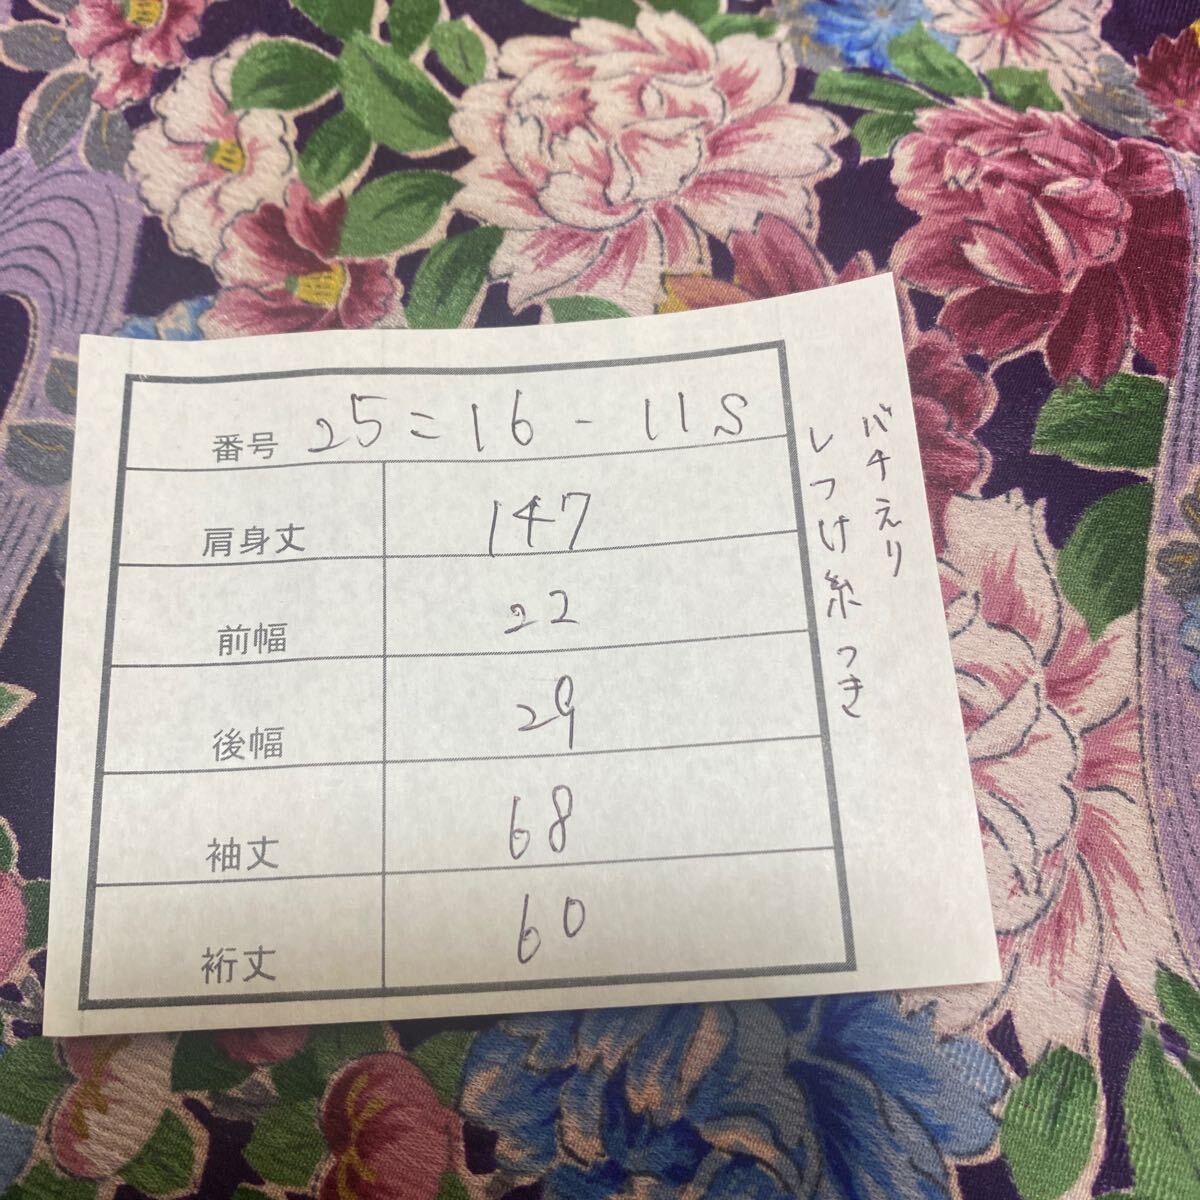 番号 25=16-11S
肩身丈 147
前幅 22
後幅 29
袖丈 68
裄丈 60
バチえり
しつけ糸つき